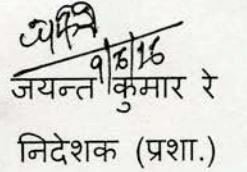 9/6/16
जयन्त कुमार रे
निदेशक (प्रशा.)